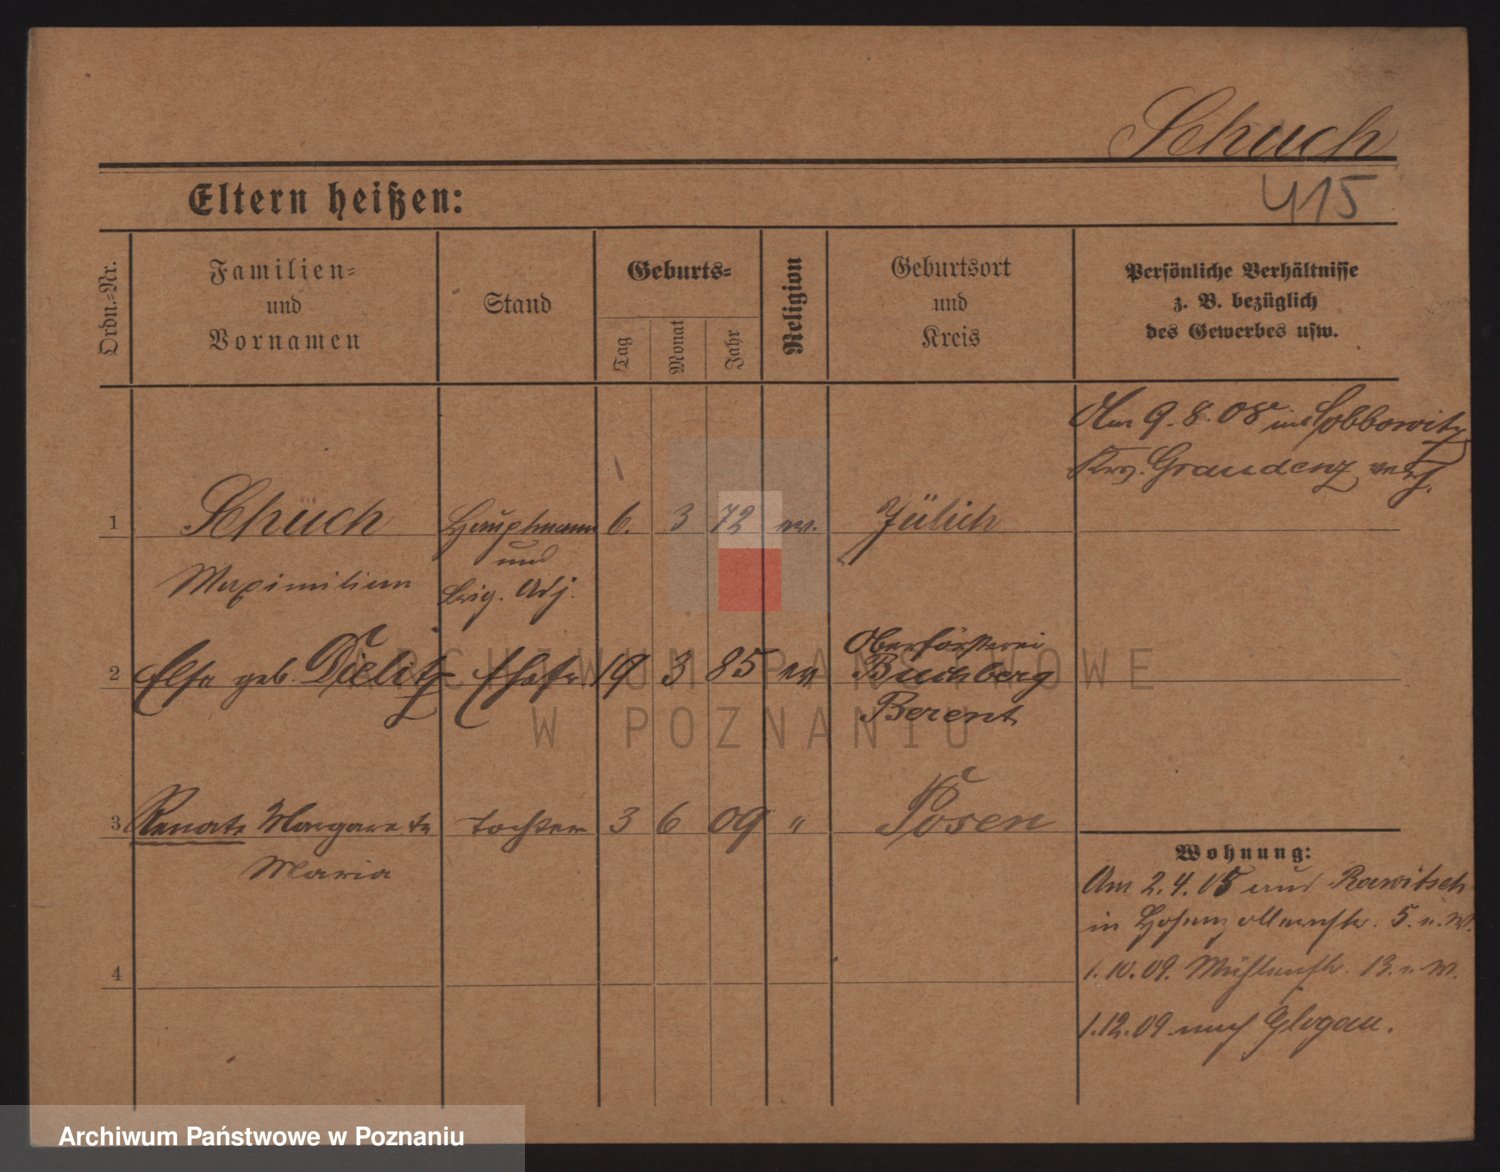 Schuch
415
Eltern heißen:
Ordn.-Nr.
Familien-
und
Vornamen
Stand
Geburts-
Tag
Monat
Jahr
Religion
Geburtsort
und
Kreis
Persönliche Verhältnisse
z. B. bezüglich
des Gewerbes usw.
Am 9.8.08 in Sobbowitz
Krs. Graudenz verh.
1 Schuch Hauptmann 6. 3 72 ev. Jülich
und
Maximilian Brig. Adj.
Oberförsterei
2 Else geb. Dielitz Ehefr 19 3 85 ev Buchberg
Berent
3 Renate Margarete Tochter 3 6 09 " Posen
Maria
Wohnung:
Am 2.4.05 aus Rawitsch
in Hohenzollernstr. 5. u. W.
4
1.10.09. Mühlenstr. 13. u. W.
1.12.09 nach Glogau.
ARCHIWUM PAŃSTWOWE
W POZNANIU
Archiwum Państwowe w Poznaniu